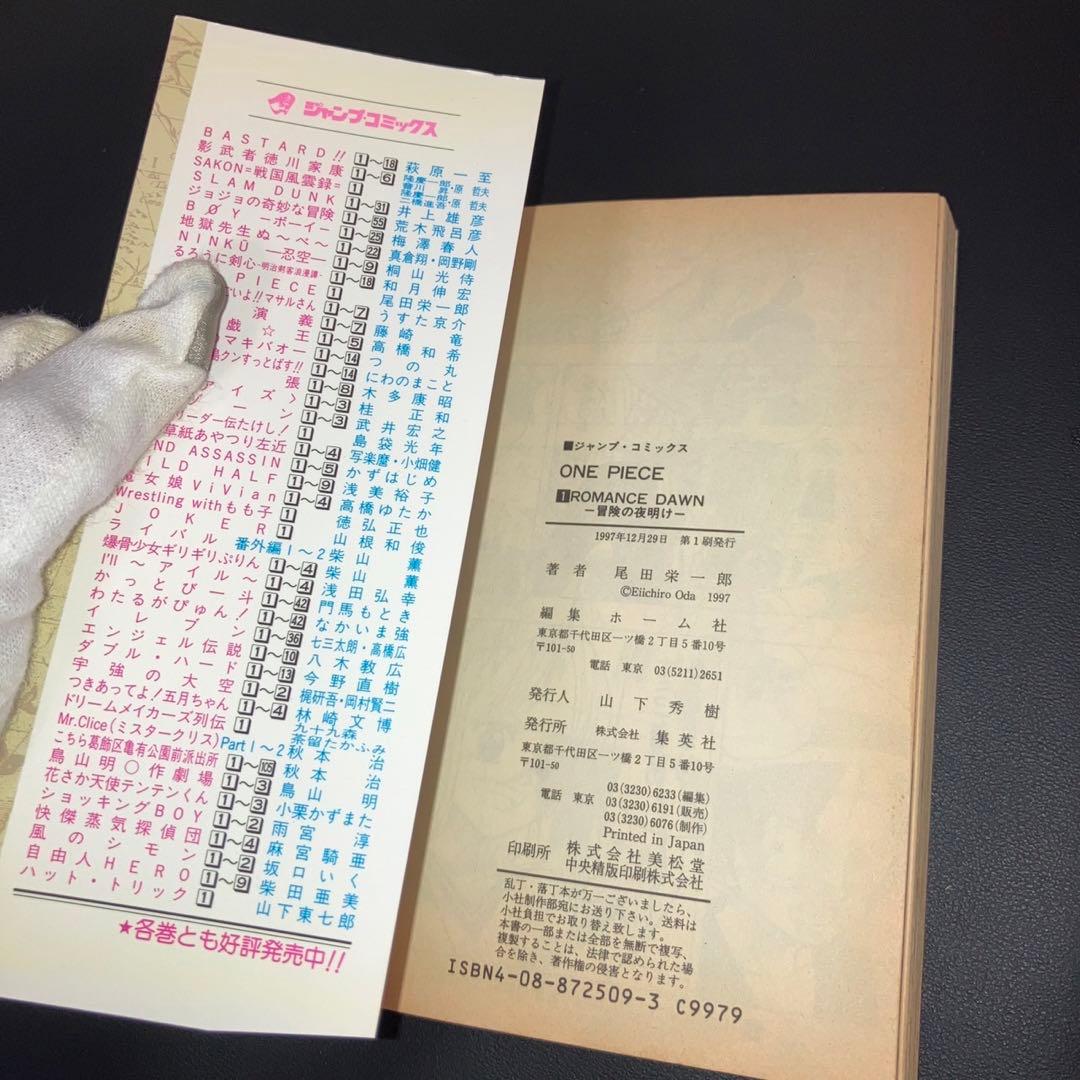 ジャンプ・コミックス
BASTARD!! 1〜18 萩原一至
影武者徳川家康 1〜6 隆慶一郎・原哲夫
SAKON=戦国風雲録=
SLAM DUNK 1〜31 井上雄彦
ジョジョの奇妙な冒険 1〜55 荒木飛呂彦
BOY―ボーイ― 1〜25 梅澤春人
地獄先生ぬ〜べ〜 1〜22 真倉翔・岡野剛
NINKŪ―忍空― 1〜9 桐山光侍
るろうに剣心-明治剣客浪漫譚- 1〜18 和月伸宏
PIECE 1 尾田栄一郎
いよ!!マサルさん 1〜7 うすた京介
演義 1〜7 藤崎竜
戯☆王 1〜5 高橋和希
マキバオー 1〜14 つの丸
クンすっとばす!! 1〜14 にわのまこと
張 1〜8 木多康昭
アイズ〉 1〜3 桂正和
ーン 1〜3 武井宏之
リーダー伝たけし! 1 島袋光年
草紙あやつり左近 1〜4 写楽麿・小畑健
ND ASSASSIN 1〜5 かずはじめ
ILD HALF 1〜9 浅美裕子
魔女娘ViVian 1〜4 高橋ゆたか
Wrestling withもも子 1 徳弘正也
JOKER 1 山根和俊
ライバル 番外編1〜2 柴山薫
爆骨少女ギリギリぷりん 1〜4 柴山薫
I'll〜アイル〜 1〜4 浅田弘幸
かっとび一斗 1〜42 門馬もとき
わたるがぴゅん! 1〜42 なかいま強
イレブン 1〜36 七三太朗・高橋広
エンジェル伝説 1〜10 八木教広
ダブル・ハード 1〜13 今野直樹
宇強の大空 1〜2 梶研吾・岡村賢二
つきあってよ!五月ちゃん 1〜4 林崎文博
ドリームメイカーズ列伝 1 九十九森 茶留たかふみ
Mr.Clice(ミスタークリス) Part1〜2 秋本治
こちら葛飾区亀有公園前派出所 1〜105 秋本治
鳥山明○作劇場 1〜3 鳥山明
花さか天使テンテンくん 1〜3 小栗かずまた
ショッキングBOY 1〜2 雨宮淳
快傑蒸気探偵団 1〜4 麻宮騎亜
風のシモン 1〜2 坂口いく
自由人HERO 1〜9 柴田亜美
ハット・トリック 1 山下東七郎
★各巻とも好評発売中!!
■ジャンプ・コミックス
ONE PIECE
1 ROMANCE DAWN
―冒険の夜明け―
1997年12月29日 第1刷発行
著者 尾田栄一郎
©Eiichiro Oda 1997
編集 ホーム社
東京都千代田区一ツ橋2丁目5番10号
〒101-50
電話 東京 03(5211)2651
発行人 山下秀樹
発行所 株式会社 集英社
東京都千代田区一ツ橋2丁目5番10号
〒101-50
03(3230)6233(編集)
電話 東京 03(3230)6191(販売)
03(3230)6076(制作)
Printed in Japan
印刷所 株式会社美松堂
中央精版印刷株式会社
乱丁・落丁本が万一ございましたら、
小社制作部宛にお送り下さい。送料は
小社負担でお取り替え致します。
本書の一部または全部を無断で複写、
複製することは、法律で認められた場
合を除き、著作権の侵害となります。
ISBN4-08-872509-3 C9979